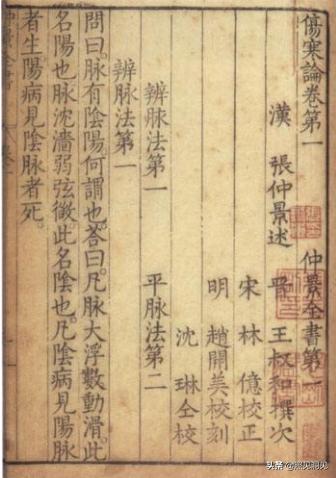 傷寒論卷第一
仲景全書第一
漢 張仲景述
晉 王叔和撰次
宋 林 億校正
明 趙開美校刻
沈 琳仝校
辨脉法第一
平脉法第二
辨脉法第一
問曰。脉有陰陽何謂也。荅曰。凡脉大浮數動滑。此
名陽也。脉沈濇弱弦微。此名陰也。凡陰病見陽脉
者生。陽病見陰脉者死。
仲景全書
头条 @